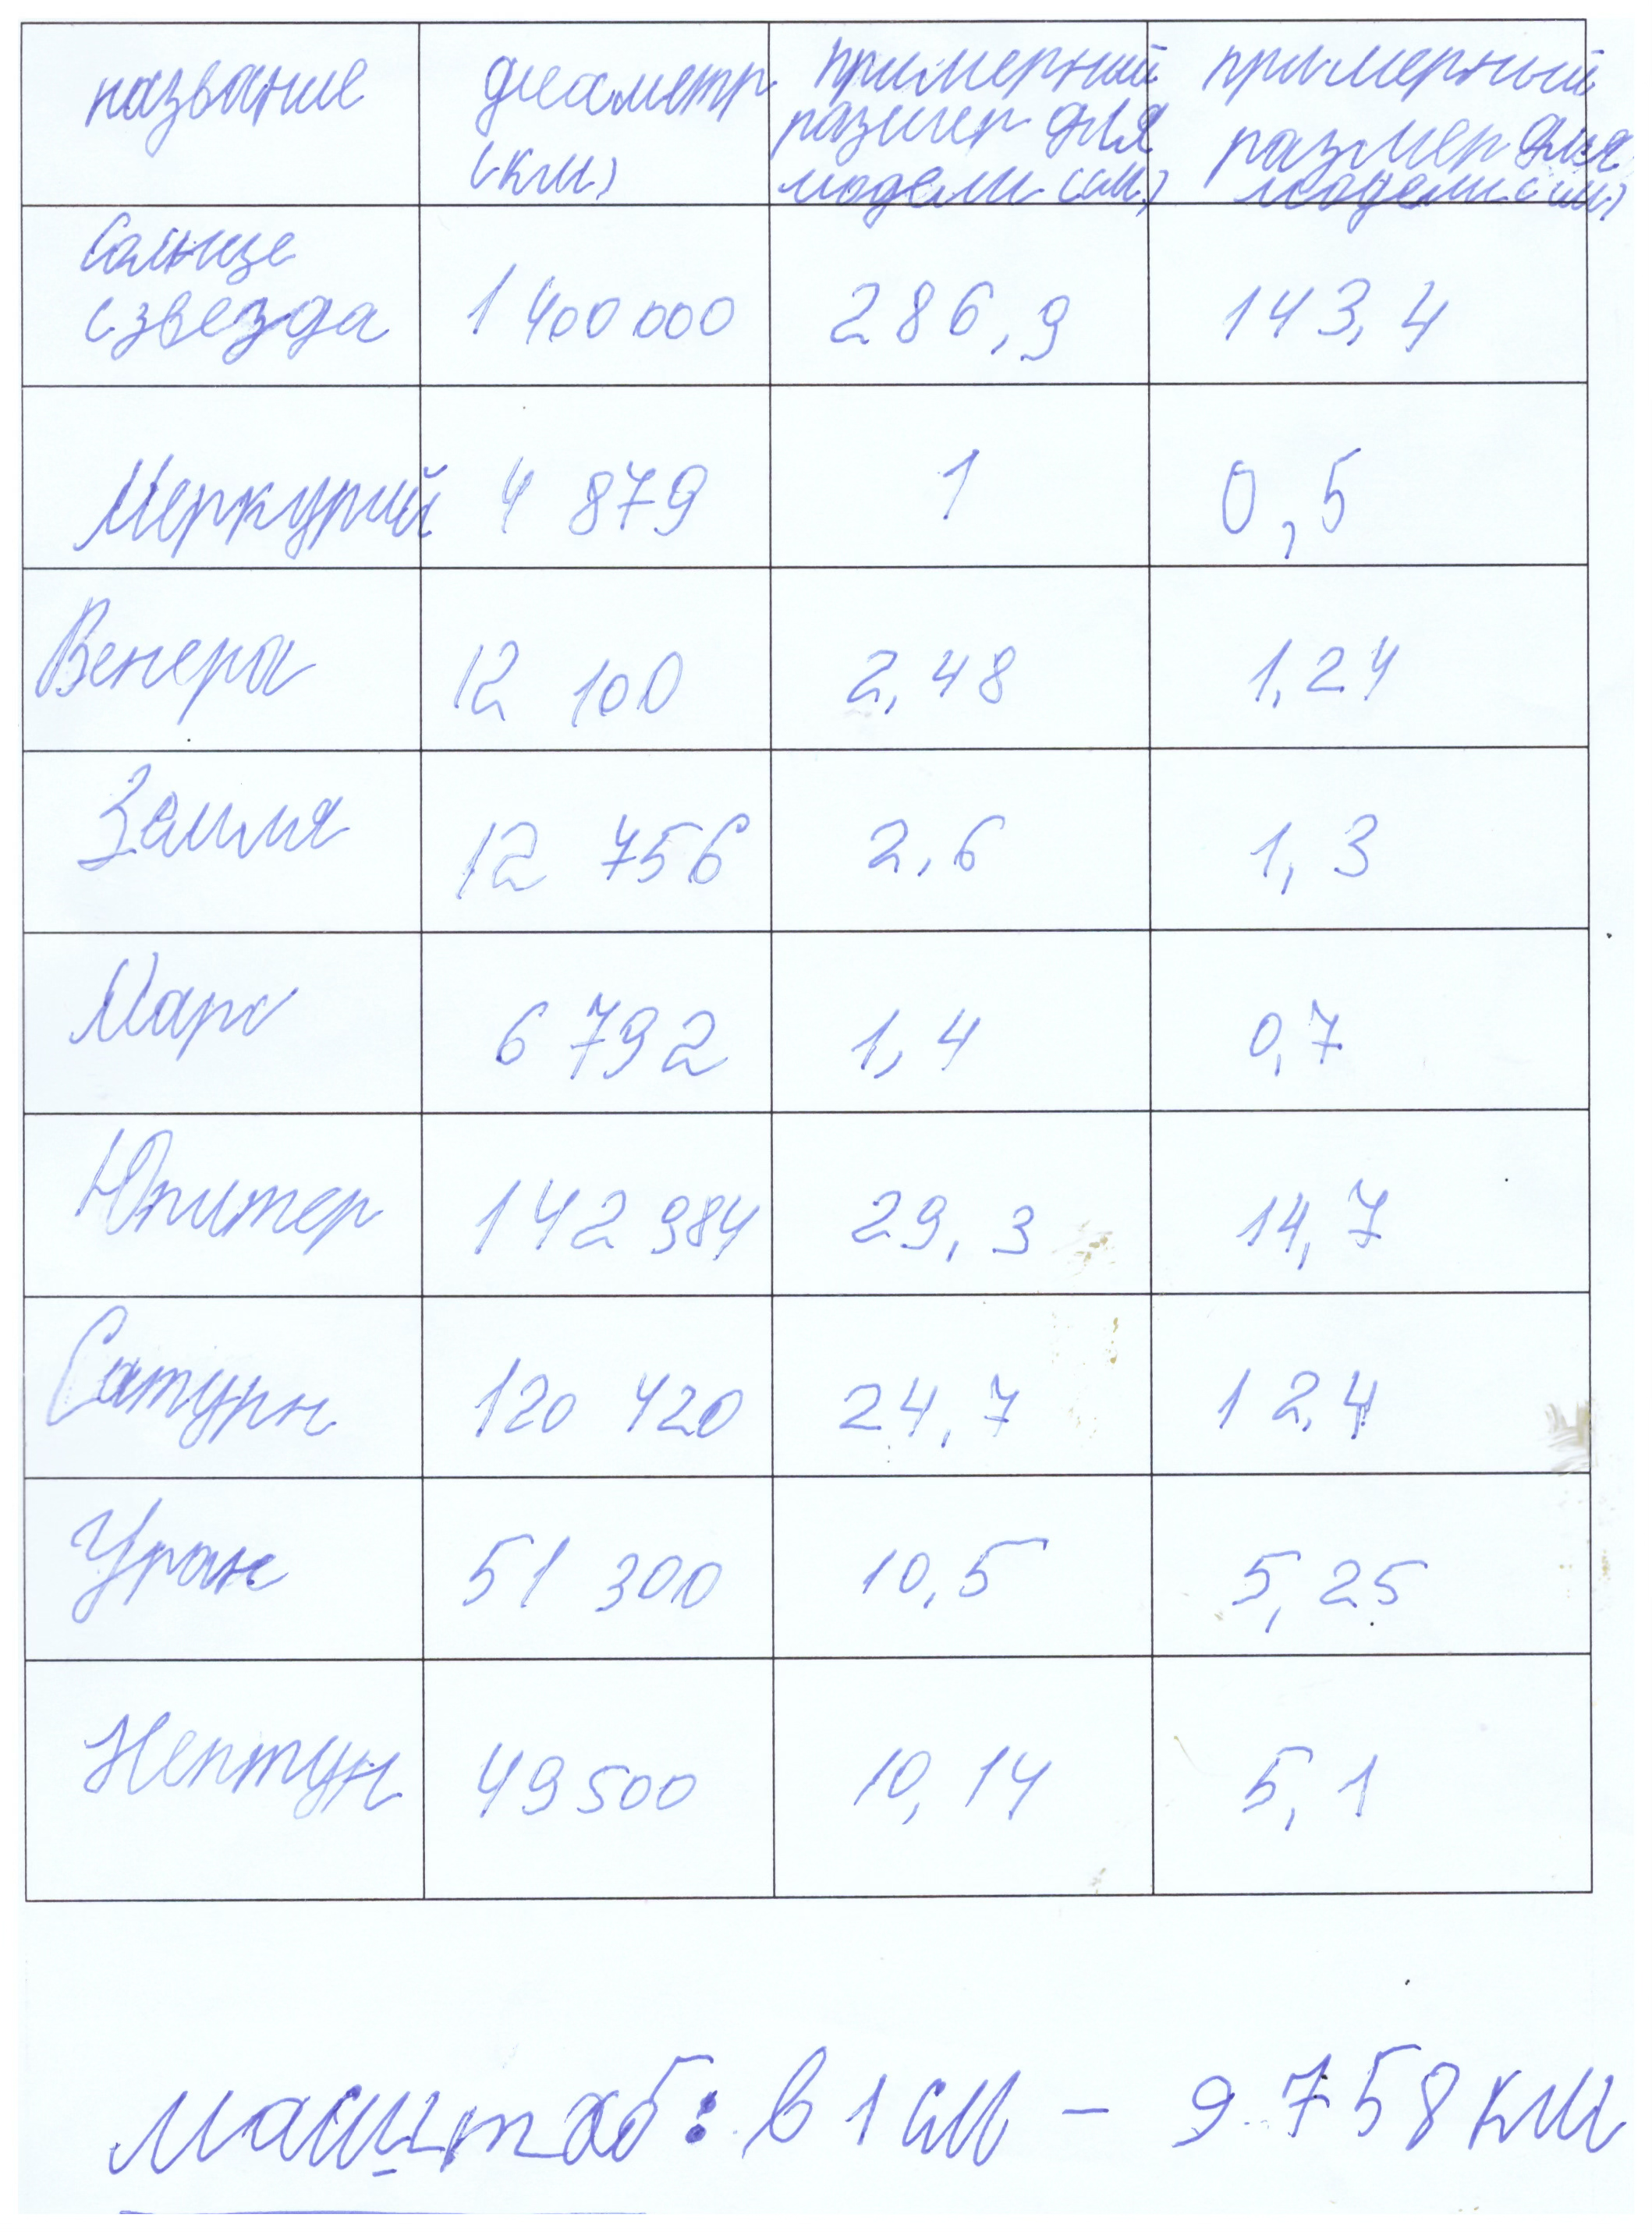 название диаметр (км) примерный размер для модели (см) примерный размер для модели (см)
Солнце (звезда 1 400 000 286,9 143,4
Меркурий 4 879 1 0,5
Венера 12 100 2,48 1,24
Земля 12 756 2,6 1,3
Марс 6 792 1,4 0,7
Юпитер 142 984 29,3 14,7
Сатурн 120 420 24,7 12,4
Уран 51 300 10,5 5,25
Нептун 49 500 10,14 5,1
масштаб: в 1 см – 9 758 км